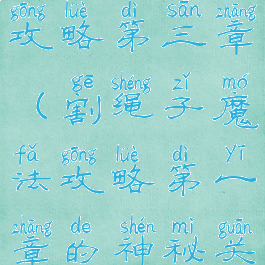 gōng lüè dì sān zhāng
攻略第三章
gē shéng zǐ mó
（割绳子魔
fǎ gōng lüè dì yī
法攻略第一
zhāng de shén mì guān
章的神秘关